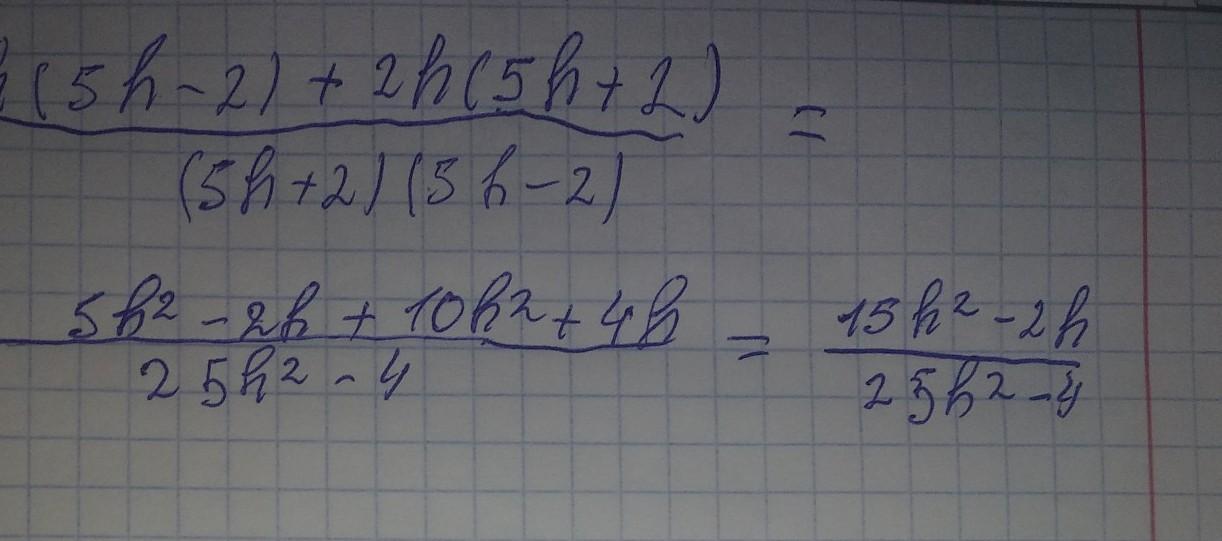 h(5h-2) + 2h(5h+2) =
(5h+2)(5h-2)
5h² - 2h + 10h² + 4h = 15h² - 2h
25h² - 4 25h² - 4